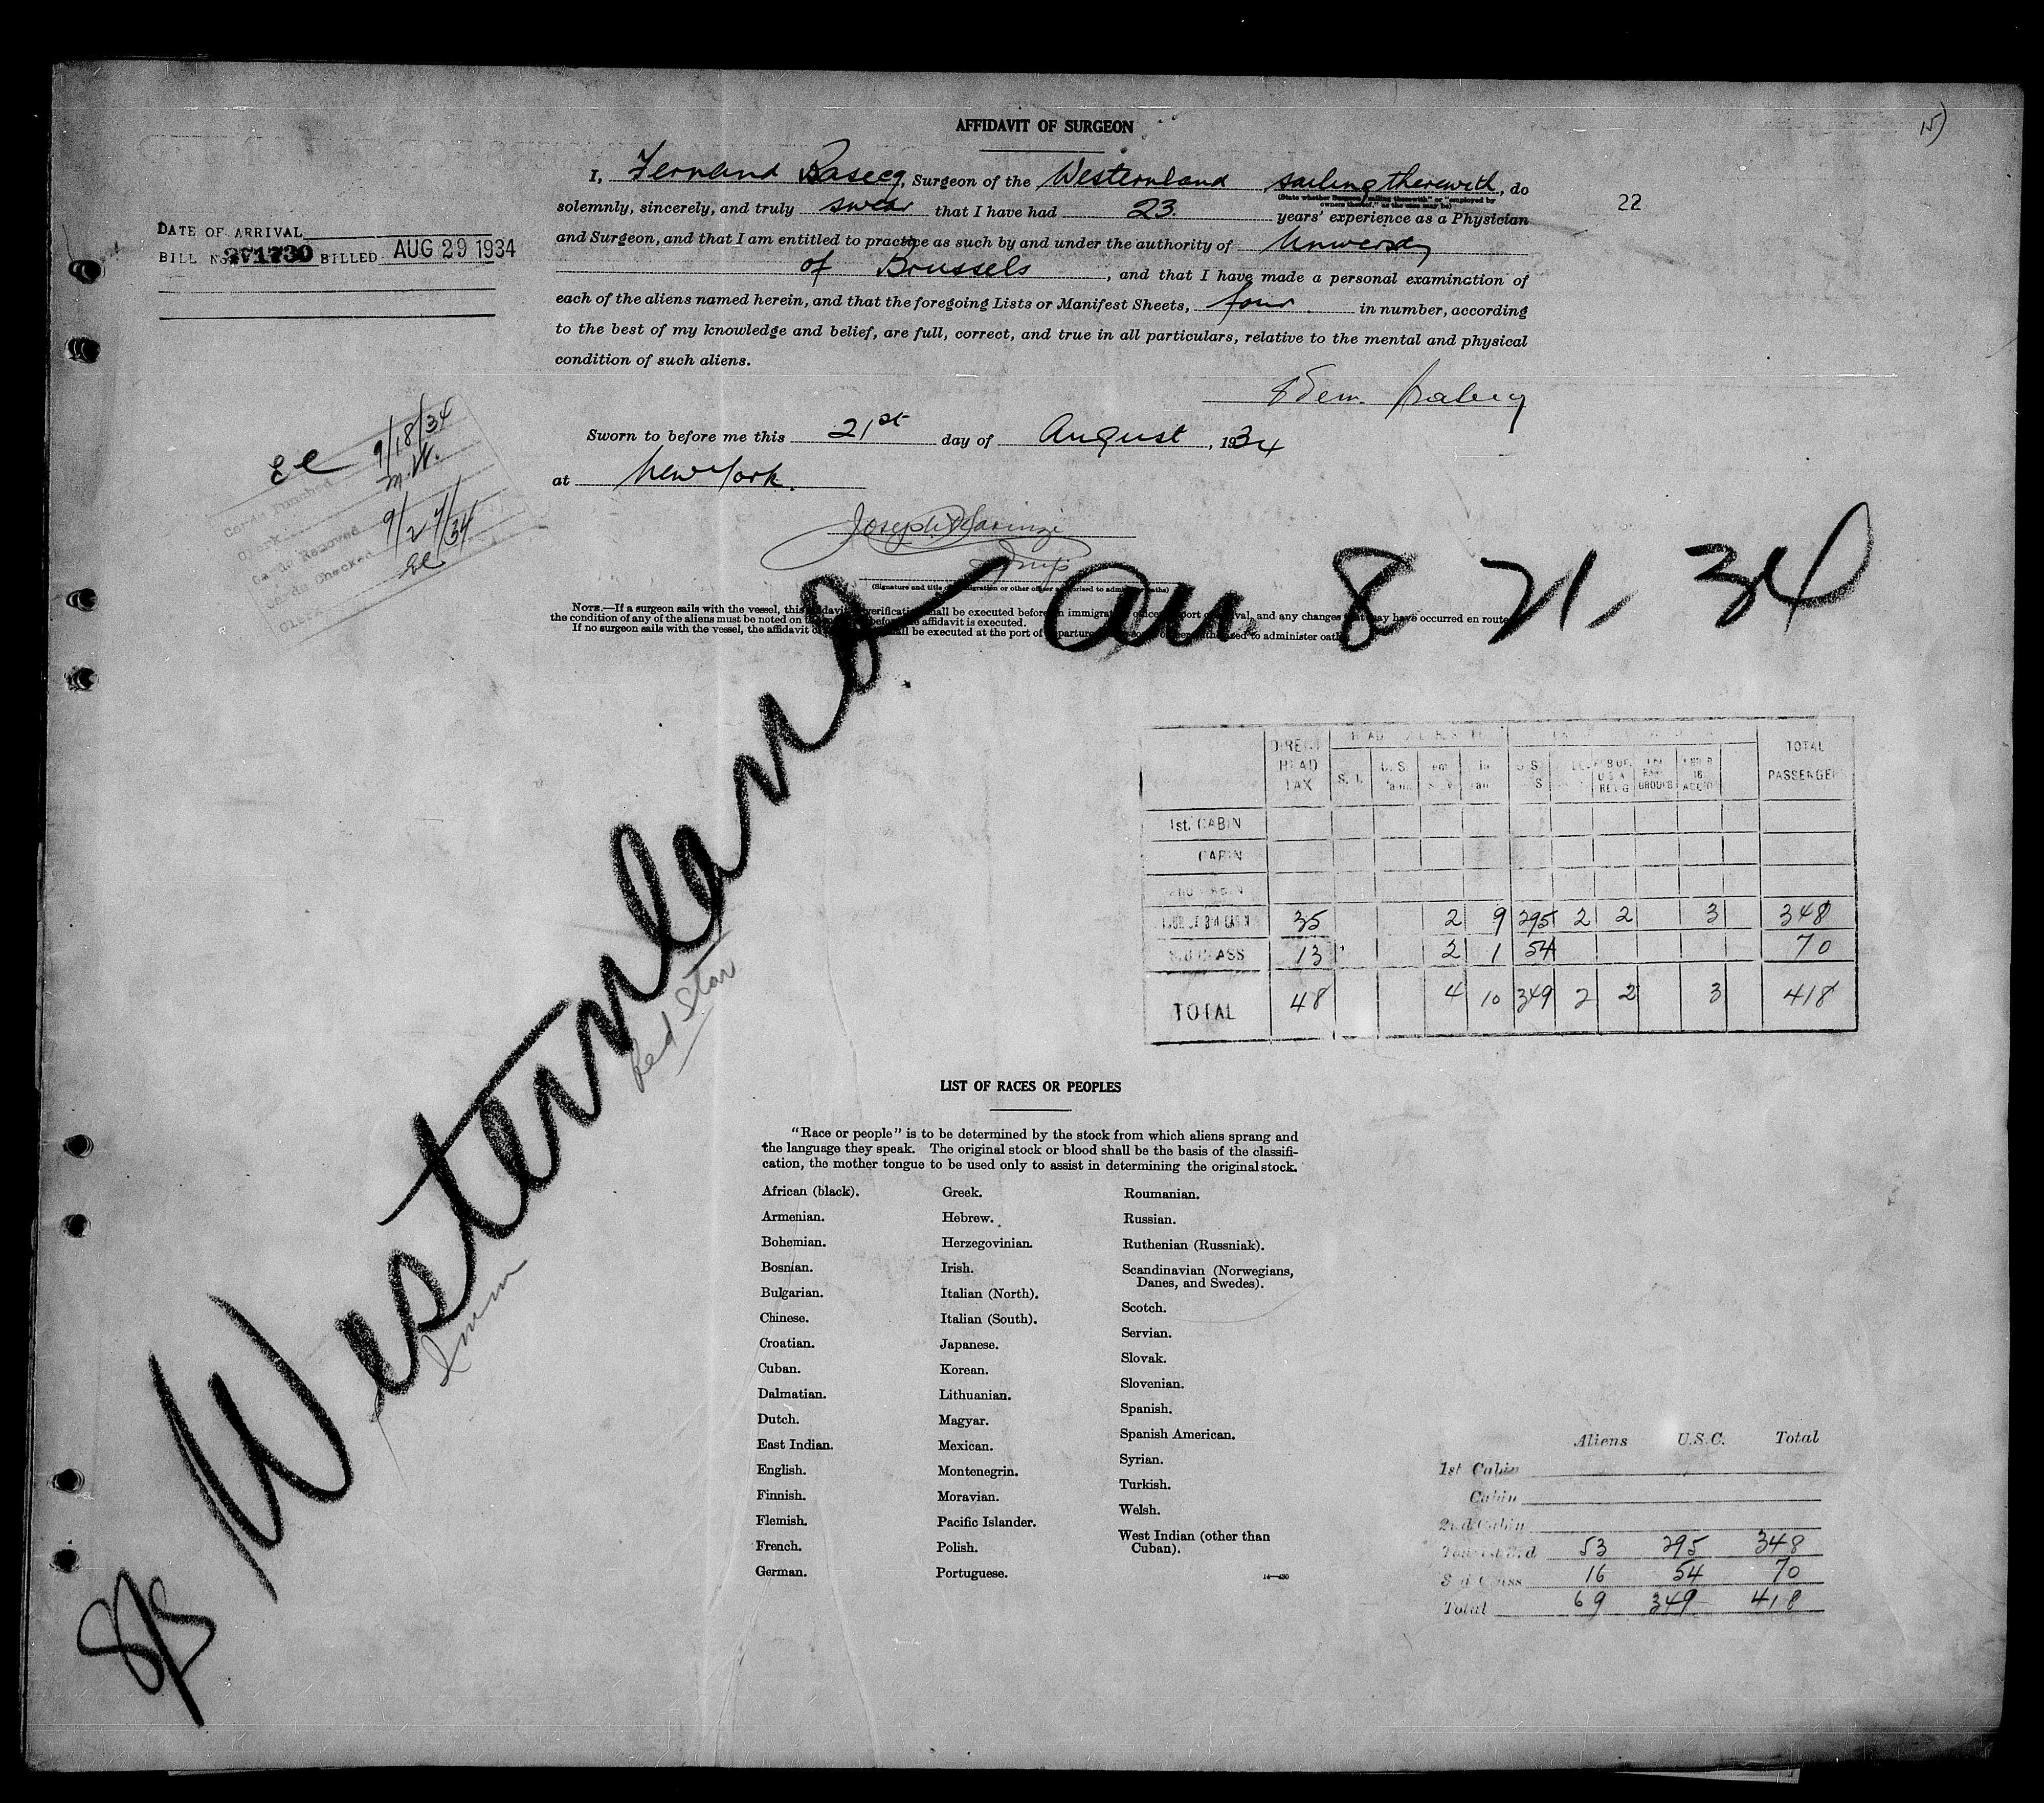 AFFIDAVIT OF SURGEON
15)
22
I, Fernand Basecq, Surgeon of the Westernland sailing therewith, do
(State whether Surgeon "sailing therewith" or "employed by
owners thereof," as the case may be)
solemnly, sincerely, and truly swear that I have had 23. years' experience as a Physician
and Surgeon, and that I am entitled to practice as such by and under the authority of University
of Brussels, and that I have made a personal examination of
each of the aliens named herein, and that the foregoing Lists or Manifest Sheets, four in number, according
to the best of my knowledge and belief, are full, correct, and true in all particulars, relative to the mental and physical
condition of such aliens.
Sworn to before me this 21st day of August, 1934
at New York.
(Signature and title of immigration or other officer authorized to administer oaths)
NOTE.—If a surgeon sails with the vessel, this affidavit verification shall be executed before an immigration officer port of arrival, and any changes that may have occurred en route
the condition of any of the aliens must be noted on the before the affidavit is executed.
If no surgeon sails with the vessel, the affidavit shall be executed at the port of departure authorized to administer oaths
DATE OF ARRIVAL
BILL No. 271730 BILLED AUG 29 1934
EC 9/18/34
Cards Punched M.W.
Clerk
Cards Removed 9/27/34
Cards Checked EC
Clerk
SS Westernland arr. 8 21, 34
Red Star
Imm
DIRECT HEAD TAX
TOTAL PASSENGERS
1st. CABIN
CABIN
2ND CABIN
35 2 9 295 2 2 3 348
3RD CLASS 13 2 1 54 70
TOTAL 48 4 10 349 2 2 3 418
LIST OF RACES OR PEOPLES
"Race or people" is to be determined by the stock from which aliens sprang and
the language they speak. The original stock or blood shall be the basis of the classifi-
cation, the mother tongue to be used only to assist in determining the original stock.
African (black).
Armenian.
Bohemian.
Bosnian.
Bulgarian.
Chinese.
Croatian.
Cuban.
Dalmatian.
Dutch.
East Indian.
English.
Finnish.
Flemish.
French.
German.
Greek.
Hebrew.
Herzegovinian.
Irish.
Italian (North).
Italian (South).
Japanese.
Korean.
Lithuanian.
Magyar.
Mexican.
Montenegrin.
Moravian.
Pacific Islander.
Polish.
Portuguese.
Roumanian.
Russian.
Ruthenian (Russniak).
Scandinavian (Norwegians,
Danes, and Swedes).
Scotch.
Servian.
Slovak.
Slovenian.
Spanish.
Spanish American.
Syrian.
Turkish.
Welsh.
West Indian (other than
Cuban).
14—430
Aliens U.S.C. Total
1st Cabin
Cabin
2nd Cabin
Tourist 3rd 53 295 348
3rd Class 16 54 70
Total 69 349 418